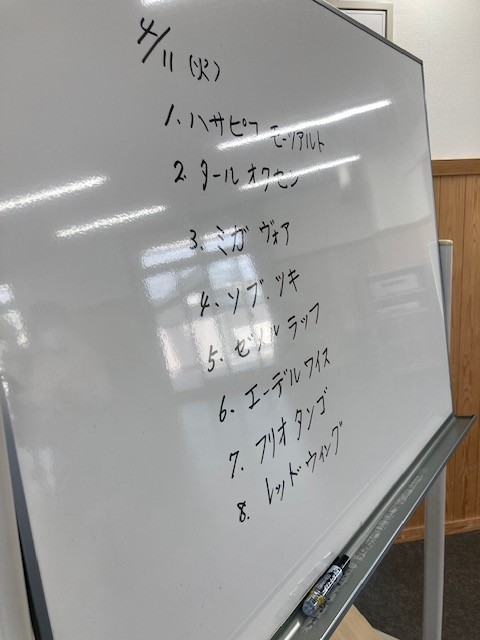 4/11 (火)
1. ハサピコ モーツアルト
2. タールオクセン
3. ミガヴォア
4. ソブ.ツキ
5. ゼノルラップ
6. エーデルワイス
7. フリオタンゴ
8. レッドウィング